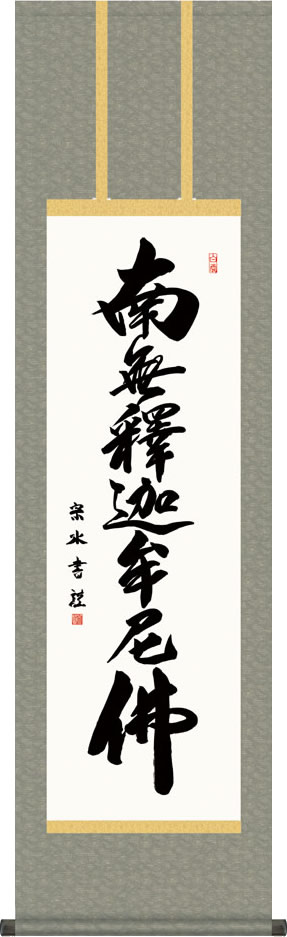 南無釋迦牟尼佛
宗水書禮